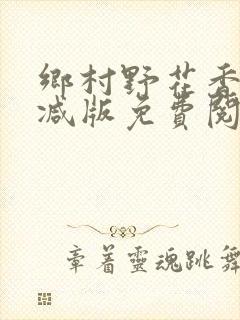 鄉村野花香
减版免費閱
章着靈魂跳舞